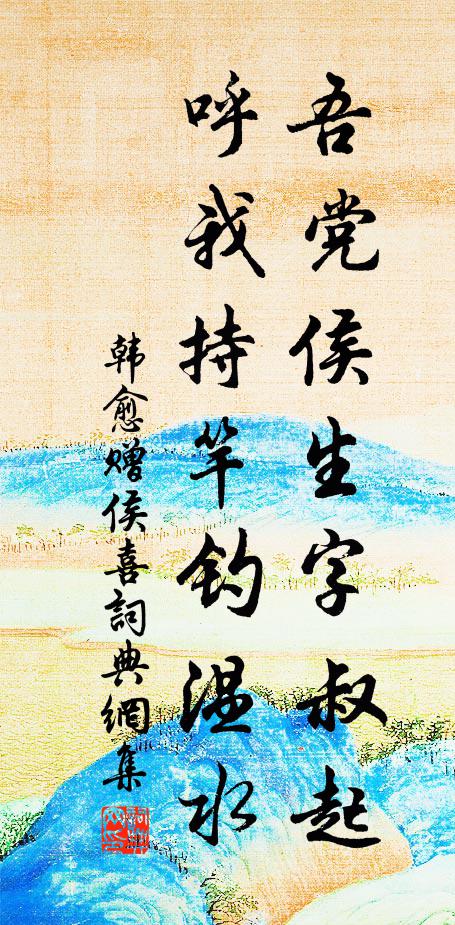 吾党侯生字叔起
呼我持竿钓温水
韩愈赠侯喜詞典網集